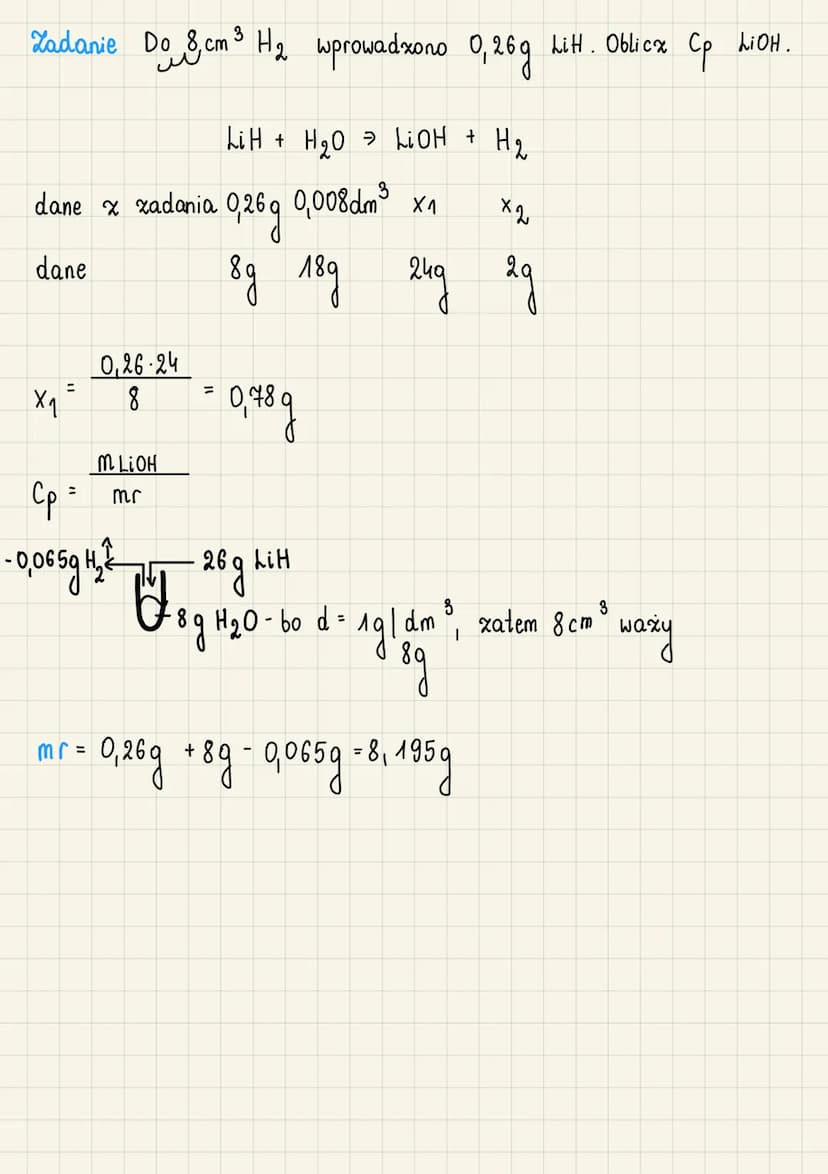 Zadanie Do 8,cm³ H₂ wprowadzono 0,26g LiH. Oblicz Cp LiOH.
LiH + H₂O ⇒ LiOH + H₂
dane z zadania 0,26g 0,008dm³ x₁ x₂
dane 8g 18g 24g 2g
x₁ = 0,26·24 / 8 = 0,78g
Cp = mLiOH / mr
-0,065g H₂↑ 26g LiH
8g H₂O - bo d = 1g|dm³, zatem 8cm³ waży
8g
mr = 0,26g + 8g - 0,065g = 8,195g